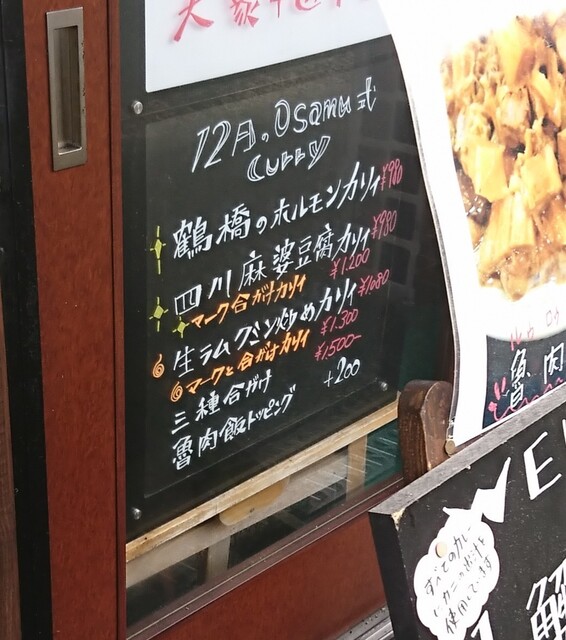 12月のOsamu式
Curry
鶴橋のホルモンカリィ ¥980
四川麻婆豆腐カリィ ¥980
マーク合がけカリィ ¥1.200
生ラムクミン炒めカリィ ¥1.080
マークと合がけカリィ ¥1.300
三種合がけ ¥1.500-
魯肉飯トッピング +200
魯肉
WE
すべてのカレー
にカニの出汁を
使用しています